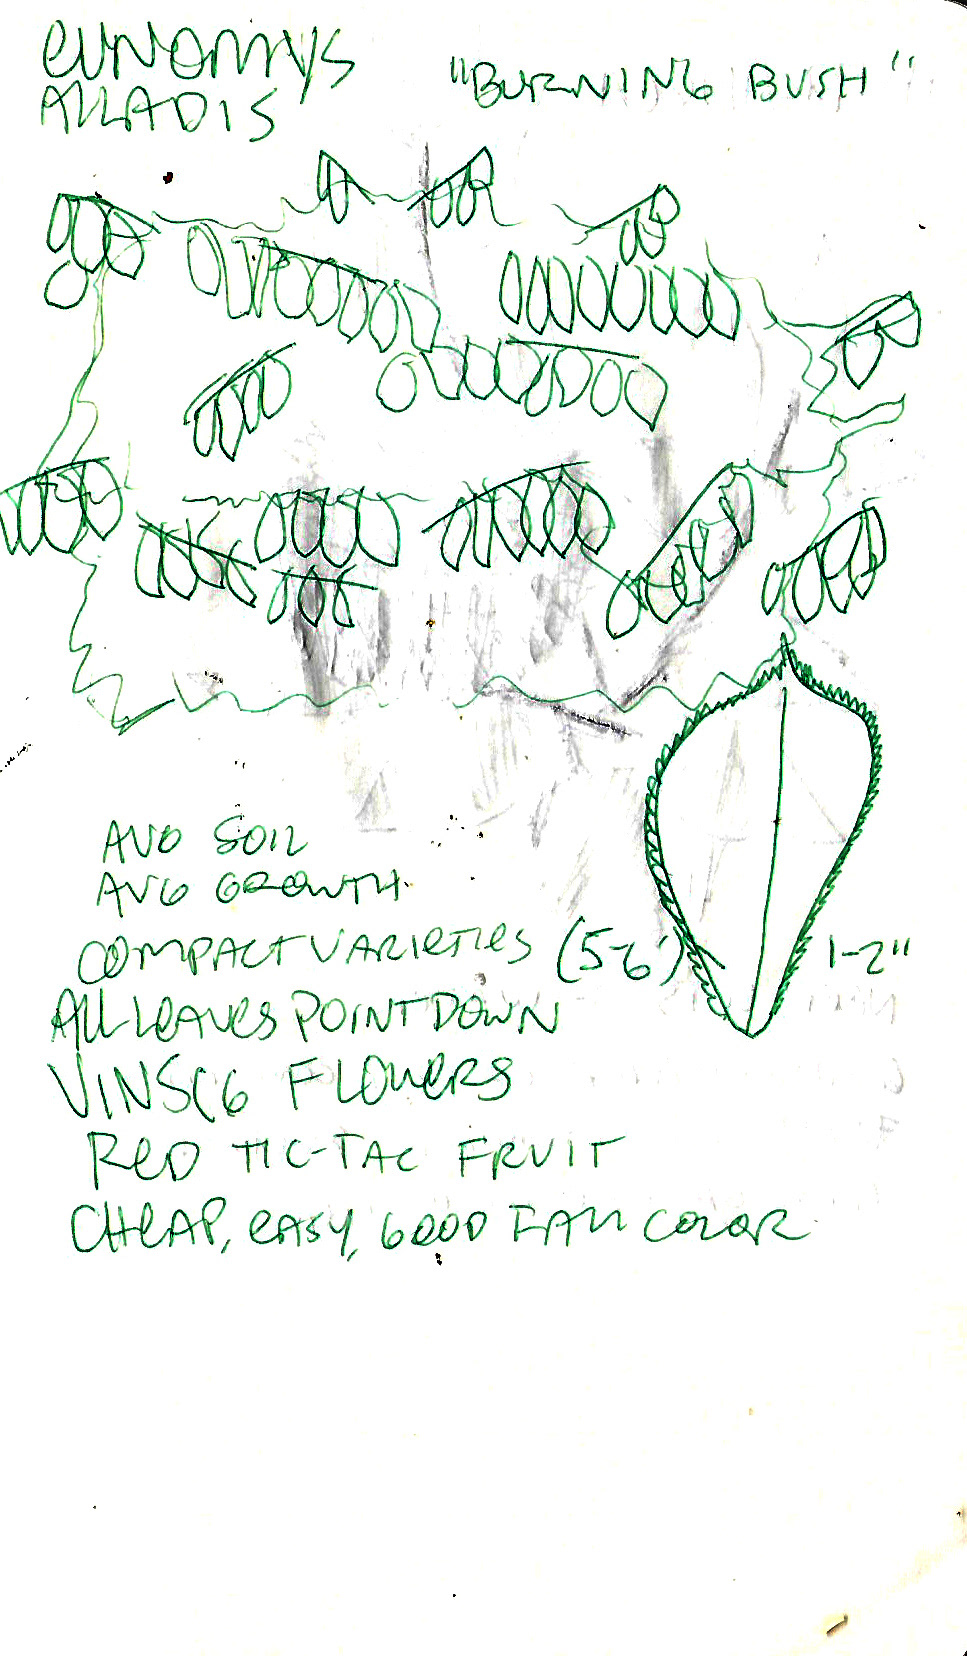 EUNOMYS
ALLADIS
"BURNING BUSH"
AVG SOIL
AVG GROWTH
COMPACT VARIETIES (5-6')
ALL LEAVES POINT DOWN
1-2"
FLOWERS
RED TIC-TAC FRUIT
CHEAP, EASY, GOOD FALL COLOR